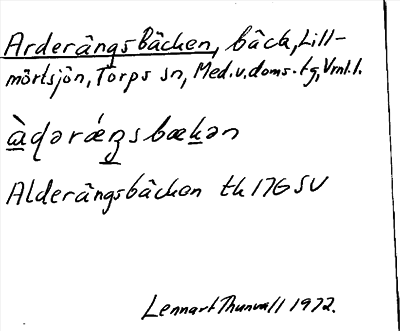 Arderångsbäcken, bäck, Lill-
mörtsjön, Torps sn, Med.v.doms.tg, Vrnl.l.
àqəráŋsbækən
Alderångsbäcken tk 17G SV
Lennart Thunvall 1972.